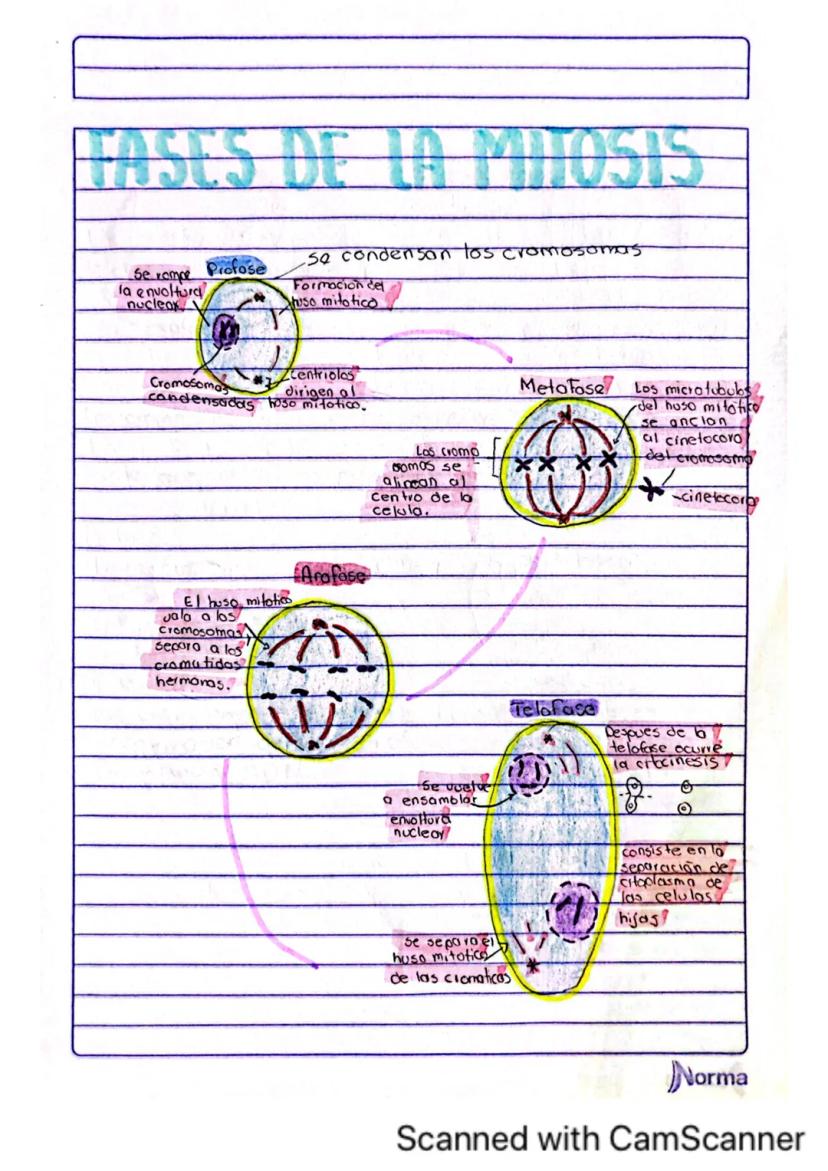 FASES DE LA MITOSIS
Profase
se condensan los cromosomas
Se rompe
la envoltura
nuclear
Formación del
huso mitotico
Cromosomas
condensados
centriolos
dirigen al
huso mitotico.
Metafase
Los microtubulos
del huso mitotico
se anclan
al cinetocoro
del cromosoma
-cinetocoro
Los cromo
somas se
alinean al
centro de la
celula.
Anafase
El huso mitotico
jala a los
cromosomas
separa a las
cromatidas
hermanas.
Telofase
Despues de la
telofase ocurre
la citocinesis
Se vuelve
a ensamblar
envoltura
nuclear
consiste en la
separación de
citoplasma de
las celulas
hijas
se separa el
huso mitotico
de las cromaticas
Norma
Scanned with CamScanner